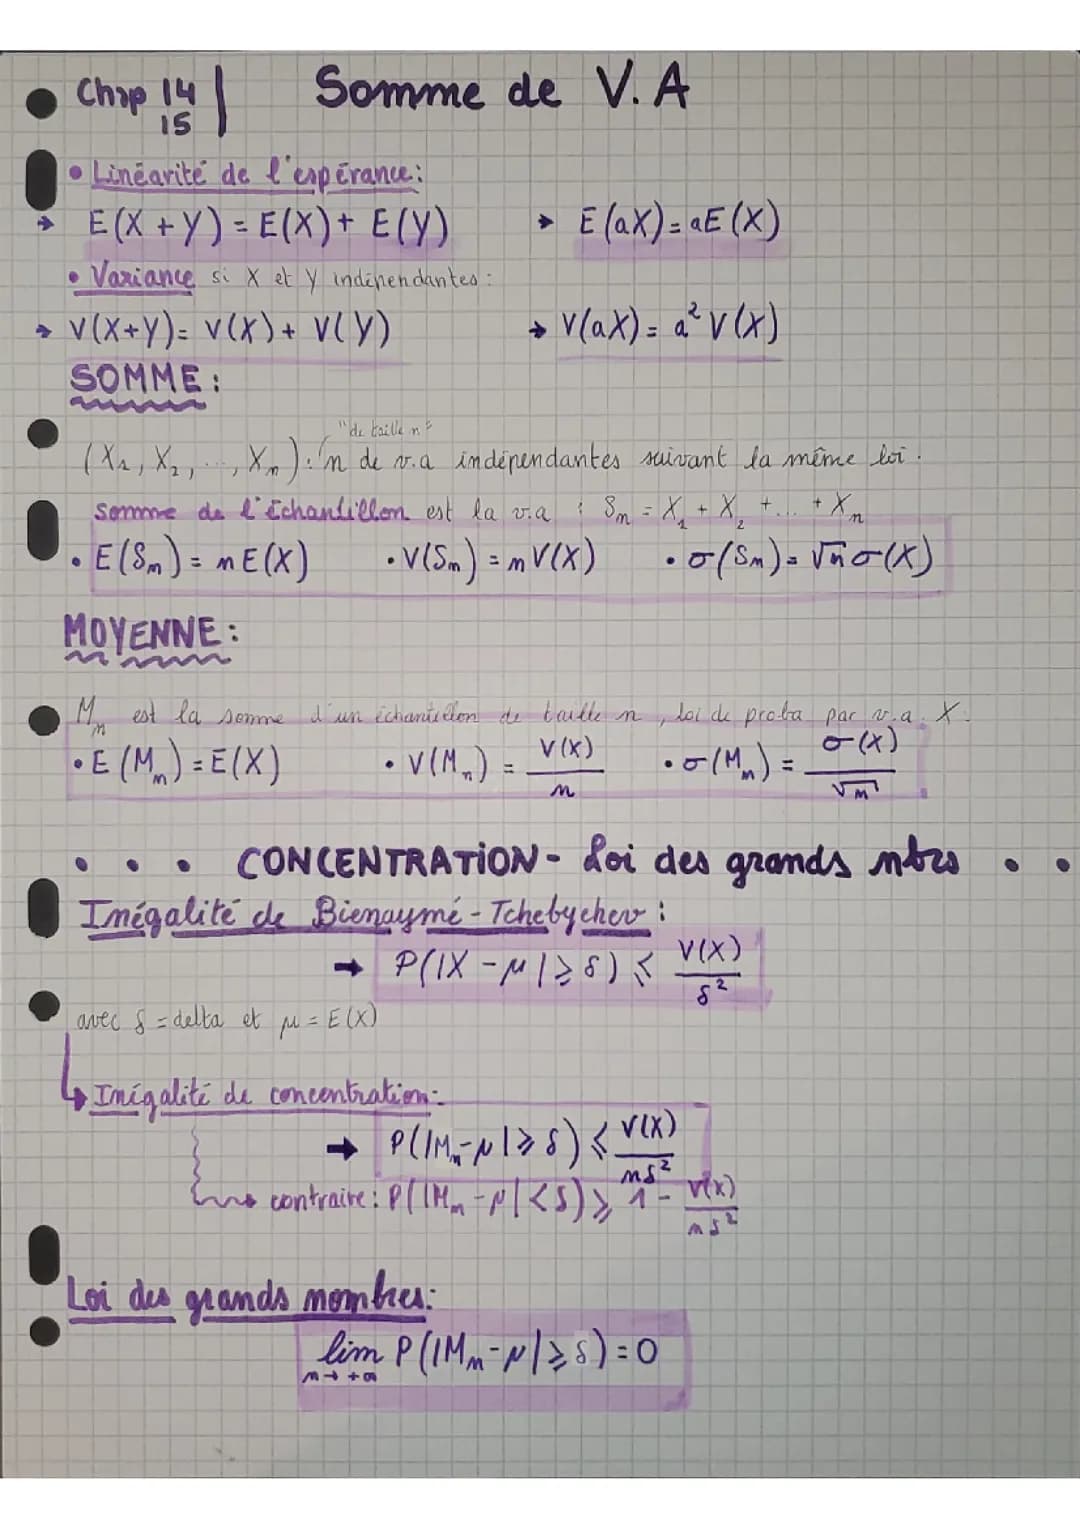 Chap 14 | Somme de V.A
15
• Linéarité de l'espérance:
→ E(X + Y) = E(X) + E(Y) → E(aX) = aE(X)
• Variance si X et Y indépendantes :
→ V(X+Y) = V(X) + V(Y) → V(aX) = a² V(X)
SOMME :
"de taille n"
(X₁, X₂, ..., Xₙ) : n de v.a indépendantes suivant la même loi.
somme de l'échantillon est la v.a : Sₙ = X₁ + X₂ + ... + Xₙ
• E(Sₙ) = nE(X) • V(Sₙ) = nV(X) • σ(Sₙ) = √n σ(X)
MOYENNE :
Mₙ est la somme d'un échantillon de taille n, loi de proba par v.a. X.
• E(Mₙ) = E(X) • V(Mₙ) = V(X)/n • σ(Mₙ) = σ(X)/√n
• • • CONCENTRATION - Loi des grands nbrs • •
Inégalité de Bienaymé - Tchebychev :
→ P(|X - μ| ⩾ δ) ⩽ V(X)/δ²
avec δ = delta et μ = E(X)
↳ Inégalité de concentration:
→ P(|Mₙ - μ| ⩾ δ) ⩽ V(X)/nδ²
→ contraire : P(|Mₙ - μ| < δ) ⩾ 1 - V(X)/nδ²
Loi des grands nombres:
lim P(|Mₙ - μ| ⩾ δ) = 0
n → +∞